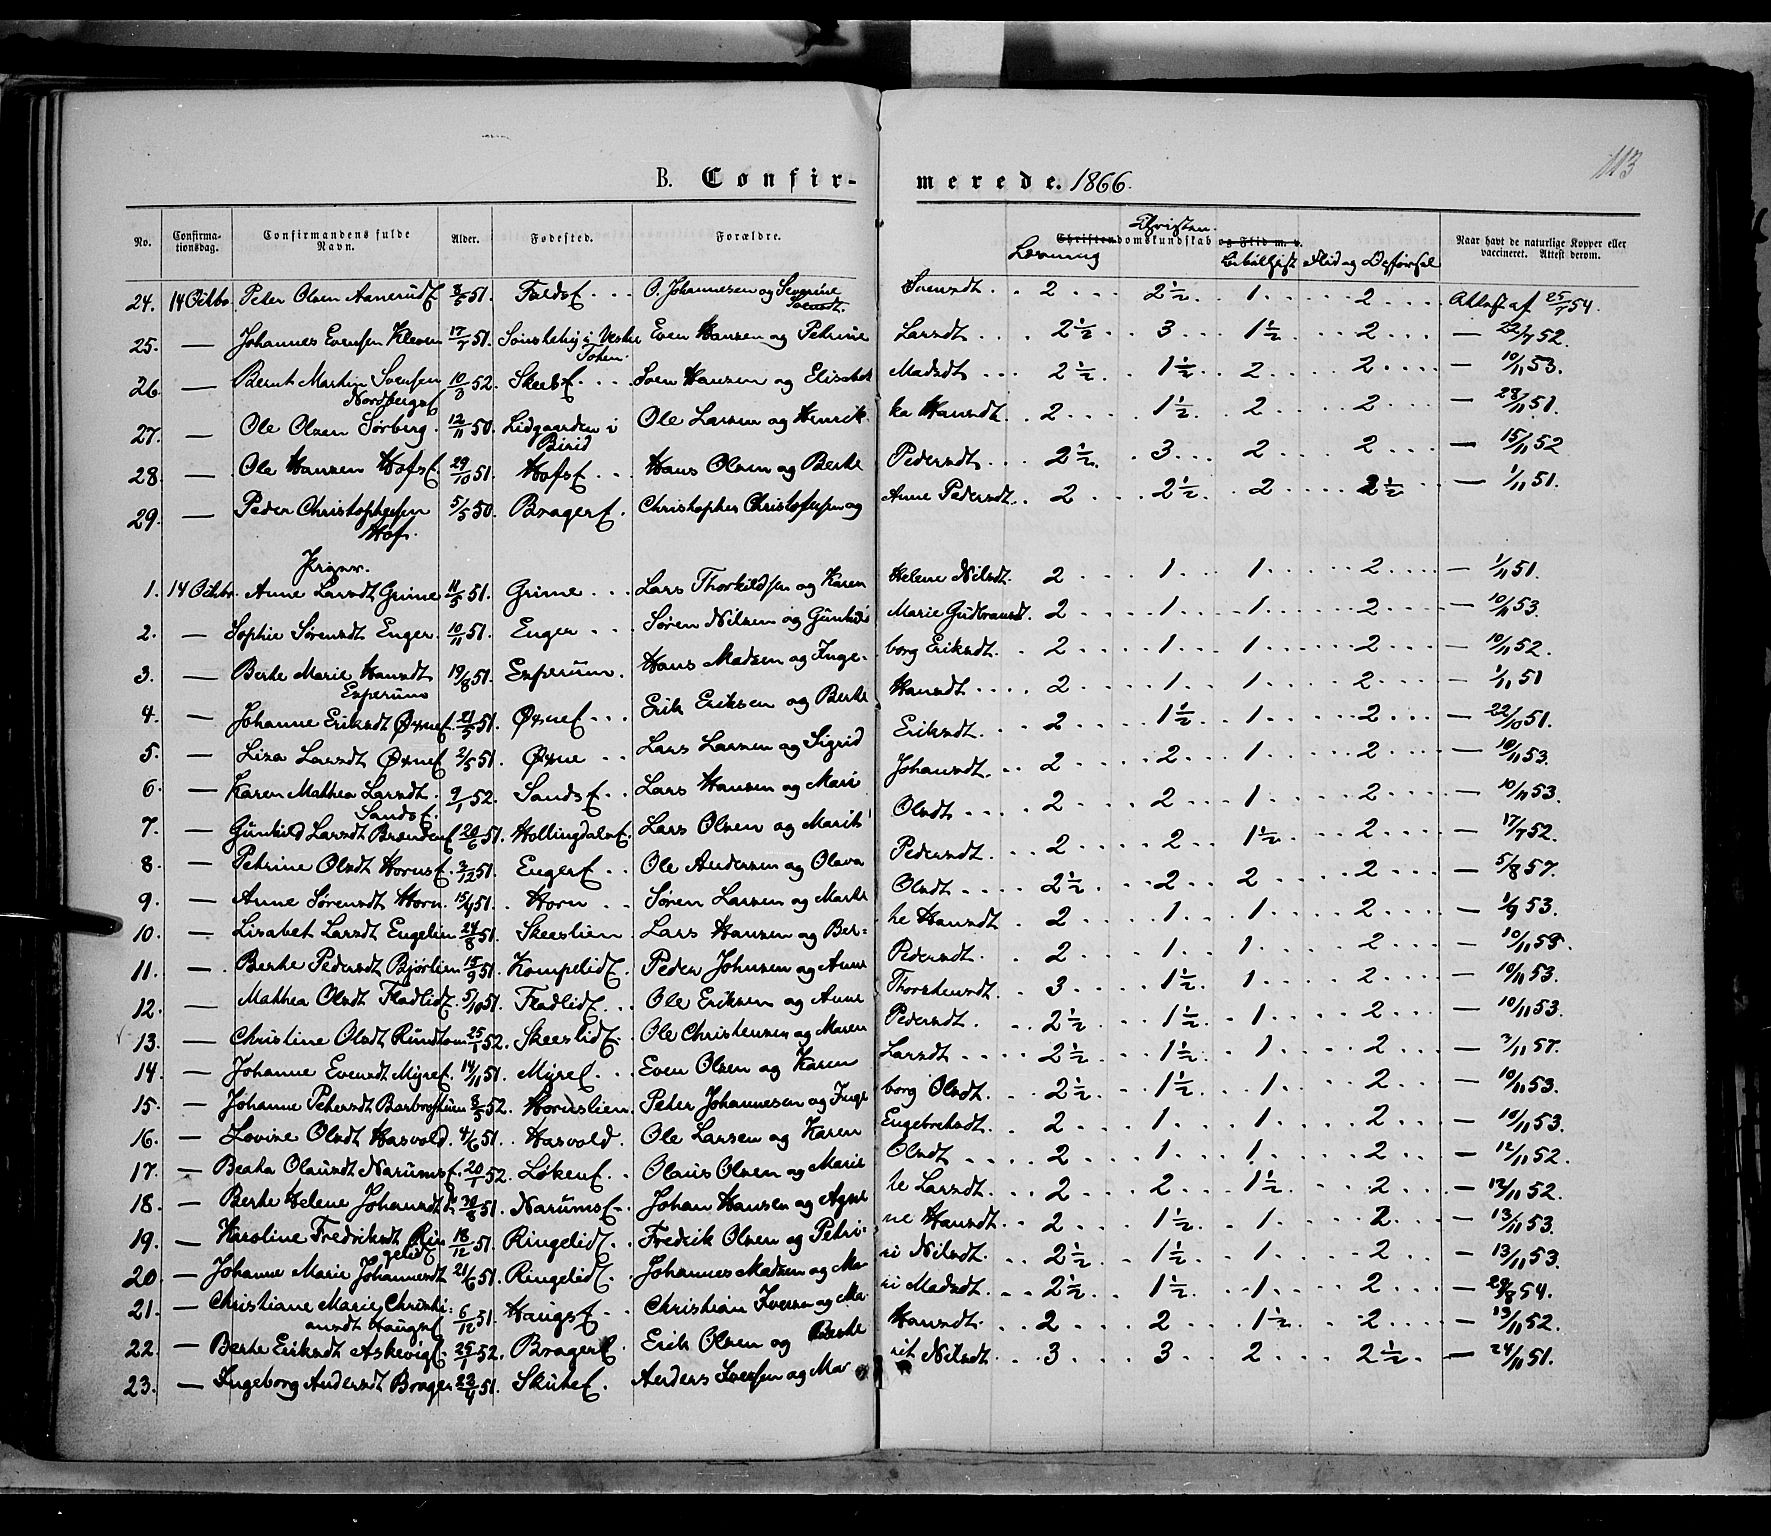 113
B. Confirmerede. 1866.
No. Confirmationsdag. Confirmandens fulde Navn. Alder. Fødested. Forældre. Læsning Christendomskundskab og Flid m. v. Flid og Naar havt de naturlige Kopper eller vaccineret. Attest derom.
24. 14 Octbr. Peter Olsen Aanerud 8/5 51. O. Johannesen og Severine Svendsdt. 2 2½ 1 2 Attest af 25/7 54.
25. — Johannes Evensen Kleven 17/7 51. i Vestre Toten. Even Hansen og Petrine Larsdt 2½ 3 1½ 2 — 22/7 52.
26. — Bernt Martin Svensen Nordberg 10/3 52. Sven Hansen og Elisabet Madsdt 2½ 1½ 2 2 — 10/11 53.
27. — Ole Olsen Sørberg. 12/11 50. Lidgaarden i Birid Ole Larsen og Henrikka Hansdt. 2 1½ 2 2 — 28/11 51.
28. — Ole Hansen Hofs 29/10 51. Hofs Hans Olsen og Berte Pedersdt 2½ 3 2 2 — 15/11 52
29. — Peder Christophersen Hof. 5/5 50. Brager Christopher Christofersen og Anne Pedersdt 2 2½ 2 2½ — 1/11 51.
Piger.
1. 14 Octbr. Anne Larsdt Grime 11/5 51. Grime Lars Thorkildsen og Karen Helene Nilsdt. 2 1 1 2 — 1/11 51.
2. — Sophie Sørensdt Enger. 10/11 51. Enger Søren Nilsen og Gunhild Marie Gudbransdt. 2 1 1 2 — 10/11 53.
3. — Berte Marie Hansdt Experum 19/8 51. Experum. Hans Madsen og Ingeborg Eriksdt. 2 1 1 2 — 10/11 52.
4. — Johanne Eriksdt Øxne 21/5 51. Øxne Erik Eriksen og Berte Hansdt 2 1 1 2 — 1/11 51
5. — Lisa Larsdt Øxne 2/5 51. Øxne Lars Larsen og Sigrid Eriksdt 2 1½ 1 2 — 22/10 51.
6. — Karen Mathea Larsdt Sands 9/1 52. Sands Lars Hansen og Mari Johansdt. 2 2 1 2 — 10/11 53.
7. — Gunhild Larsdt Brænden 20/6 51. Hollingdals Lars Olsen og Marit Olsdt 2 2 1 2 — 10/11 53.
8. — Petrine Olsdt Horns 3/12 51. Enger Ole Andersen og Olava Pedersdt. 2 2 1½ 2 — 17/7 52.
9. — Anne Sørensdt Horn. 15/4 51. Horn Søren Larsen og Marte Olsdt 2½ 2 2 2 — 5/8 57.
10. — Lisabet Larsdt Engelien 24/8 51. Skeeslien Lars Hansen og Berthe Hansdt 2 1 1 2 — 1/9 53.
11. — Berte Pedersdt Bjørlien 15/9 51. Kompelid Peder Johnsen og Anne Pedersdt 2 1 1 2 — 10/11 55.
12. — Mathea Olsdt Fladlid. 5/10 51. Fladlid Ole Eriksen og Anne Thorstensdt 3 1½ 1 2 — 10/11 53.
13. — Christine Olsdt Rundtom 25/1 52. Skeeslid Ole Christensen og Maren Pedersdt. 2½ 1½ 1 2 — 10/11 53.
14. — Johanne Evensdt Myre 14/11 51. Myre Even Olsen og Karen Larsdt 2½ 1½ 1 2 — 3/11 57.
15. — Johanne Petersdt Barbrostuen 8/5 52. Hornslien. Peter Johannesen og Ingeborg Olsdt. 2½ 1½ 1 2 — 10/11 53.
16. — Lovise Olsdt Hasvold. 4/6 51. Hasvold. Ole Larsen og Karen Engebretsdt. 2 1 1 2 — 10/11 53.
17. — Beata Olausdt Narums 20/1 52. Løken Olaus Olsen og Marie Olsdt 2 1 1 2 — 12/11 52.
18. — Berte Helene Johansdt 30/8 51. Narums Johan Hansen og Agnete Larsdt 2 2 1½ 2 — 12/11 52.
19. — Karoline Fredriksdt Ringelid 18/12 51. Ringelid. Fredrik Olsen og Petrine Hansdt. 2 1½ 1 2 — 13/11 53.
20. — Johanne Marie Johannesdt 21/6 51. Ringelid. Johannes Madsen og Mari Nilsdt. 2½ 1½ 1 2 — 13/11 53.
21. — Christiane Marie Christiansdt Haugs 6/12 51. Haugs Christian Iversen og Mari Madsdt 2½ 1½ 1 2 — 29/8 54.
22. — Berte Eriksdt Askevig 25/1 52. Brager Erik Olsen og Berte Hansdt. 2 2 1½ 2 — 13/11 52.
23. — Ingeborg Andersdt Brager 23/4 51. Skute Anders Iversen og Marit Nilsdt 3 3 2 2½ — 24/11 51.